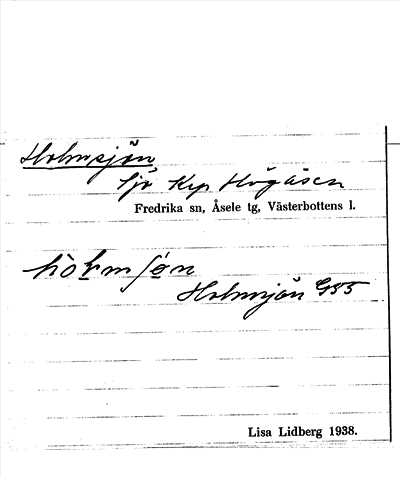 Holmsjön
Sjö Krp Högåsen
Fredrika sn, Åsele tg, Västerbottens l.
Holmsjön G55
Lisa Lidberg 1938.